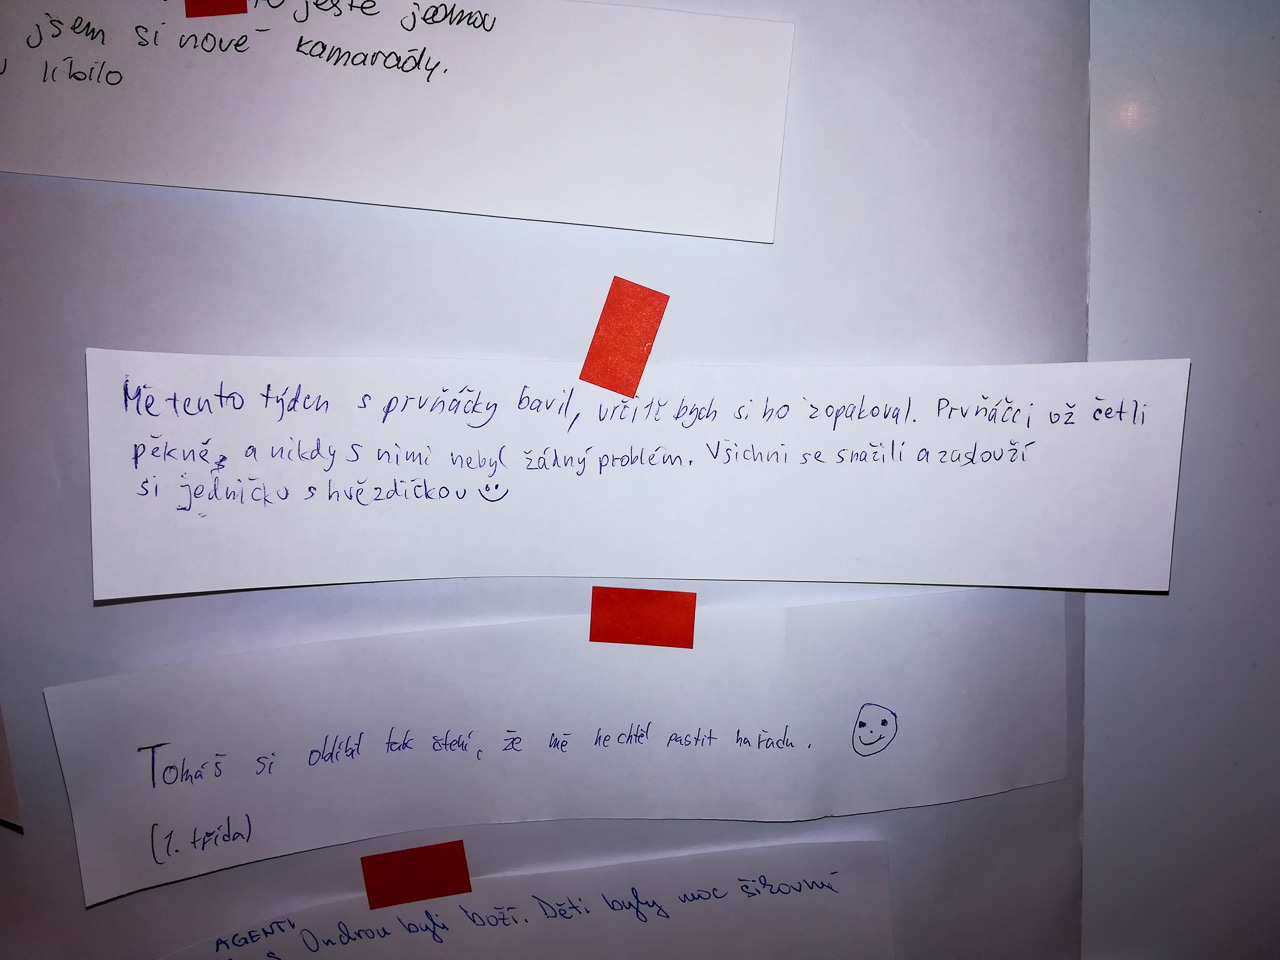 to ještě jednou
jsem si nové kamarády.
líbilo
Mě tento týden s prvňáčky bavil, určitě bych si ho zopakoval. Prvňáčci už četli
pěkně, a nikdy s nimi nebyl žádný problém. Všichni se snažili a zaslouží
si jedničku s hvězdičkou
Tomáš si oblíbil tak čtení, že mě nechtěl pustit na řadu.
(1. třída)
AGENTI Ondrou byli boží. Děti byly moc šikovné